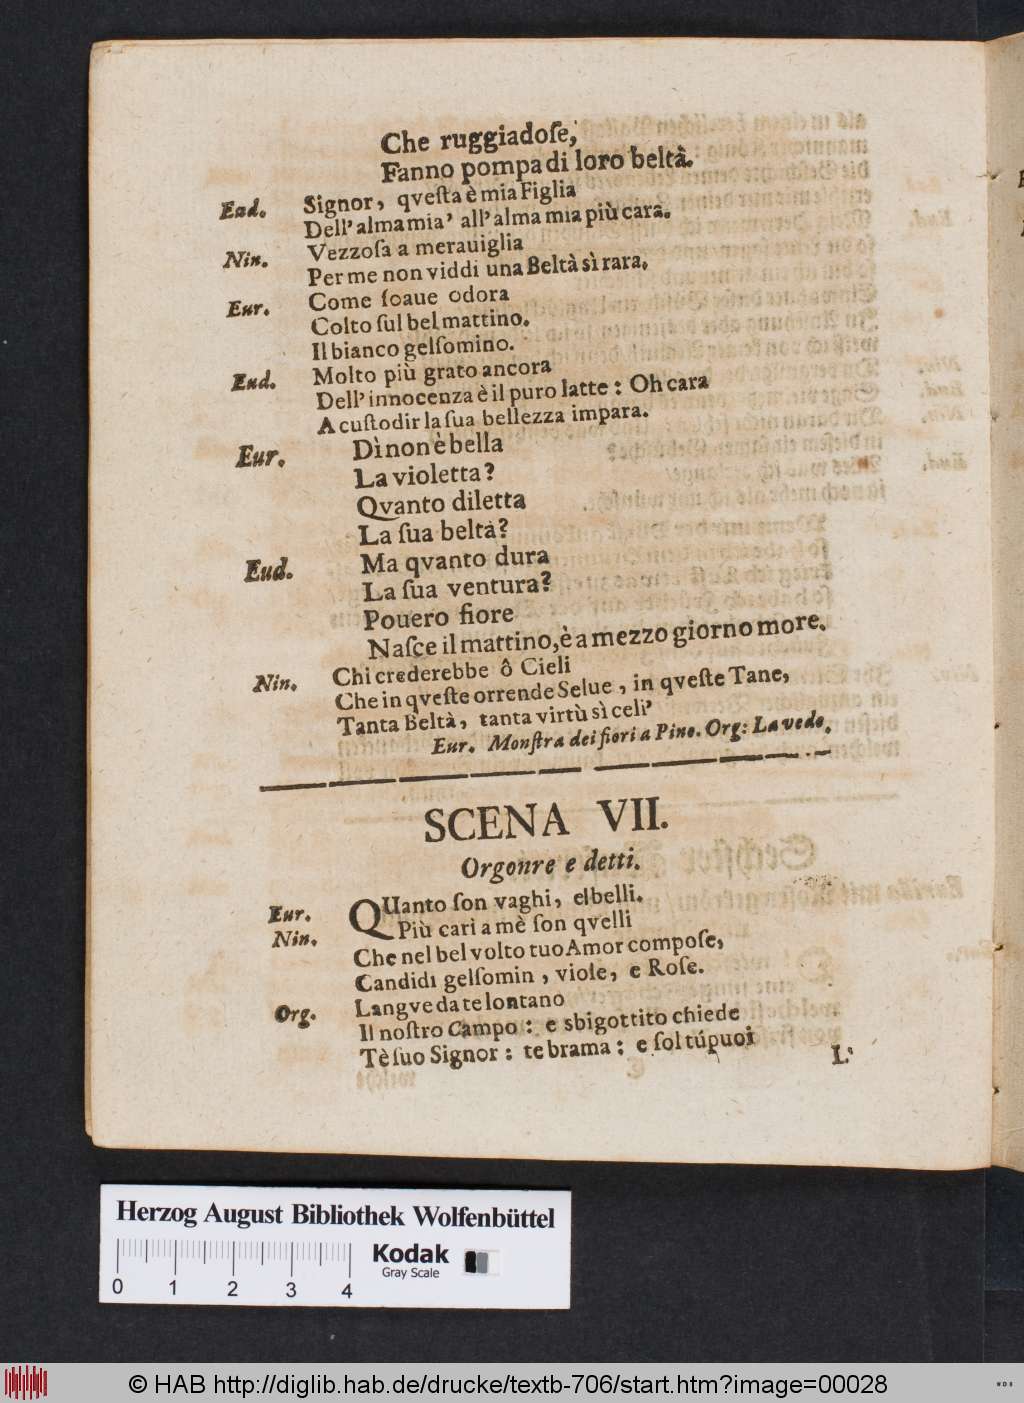 Che ruggiadoſe,
Fanno pompa di loro beltà.
Eud. Signor, qveſta è mia Figlia
Dell' alma mia' all' alma mia più cara.
Nin. Vezzoſa a merauiglia
Per me non viddi una Beltà sì rara.
Eur. Come ſoaue odora
Colto ſul bel mattino.
Il bianco gelſomino.
Eud. Molto più grato ancora
Dell' innocenza è il puro latte: Oh cara
A cuſtodir la ſua bellezza impara.
Eur. Dì non è bella
La violetta?
Qvanto diletta
La ſua beltà?
Eud. Ma qvanto dura
La ſua ventura?
Pouero fiore
Naſce il mattino, è a mezzo giorno more.
Nin. Chi crederebbe ô Cieli
Che in qveſte orrende Selue, in qveſte Tane,
Tanta Beltà, tanta virtù sì celi'
Eur. Monſtra dei fiori a Pino. Org: La vedo.
SCENA VII.
Orgonre e detti.
Eur. QUanto ſon vaghi, elbelli.
Nin. Più cari a mè ſon qvelli
Che nel bel volto tuo Amor compoſe,
Candidi gelſomin, viole, e Roſe.
Org. Langve da te lontano
Il noſtro Campo: e sbigottito chiede
Tè ſuo Signor: te brama: e ſol tú puoi
L'
Herzog August Bibliothek Wolfenbüttel
Kodak
Gray Scale
0 1 2 3 4
© HAB http://diglib.hab.de/drucke/textb-706/start.htm?image=00028